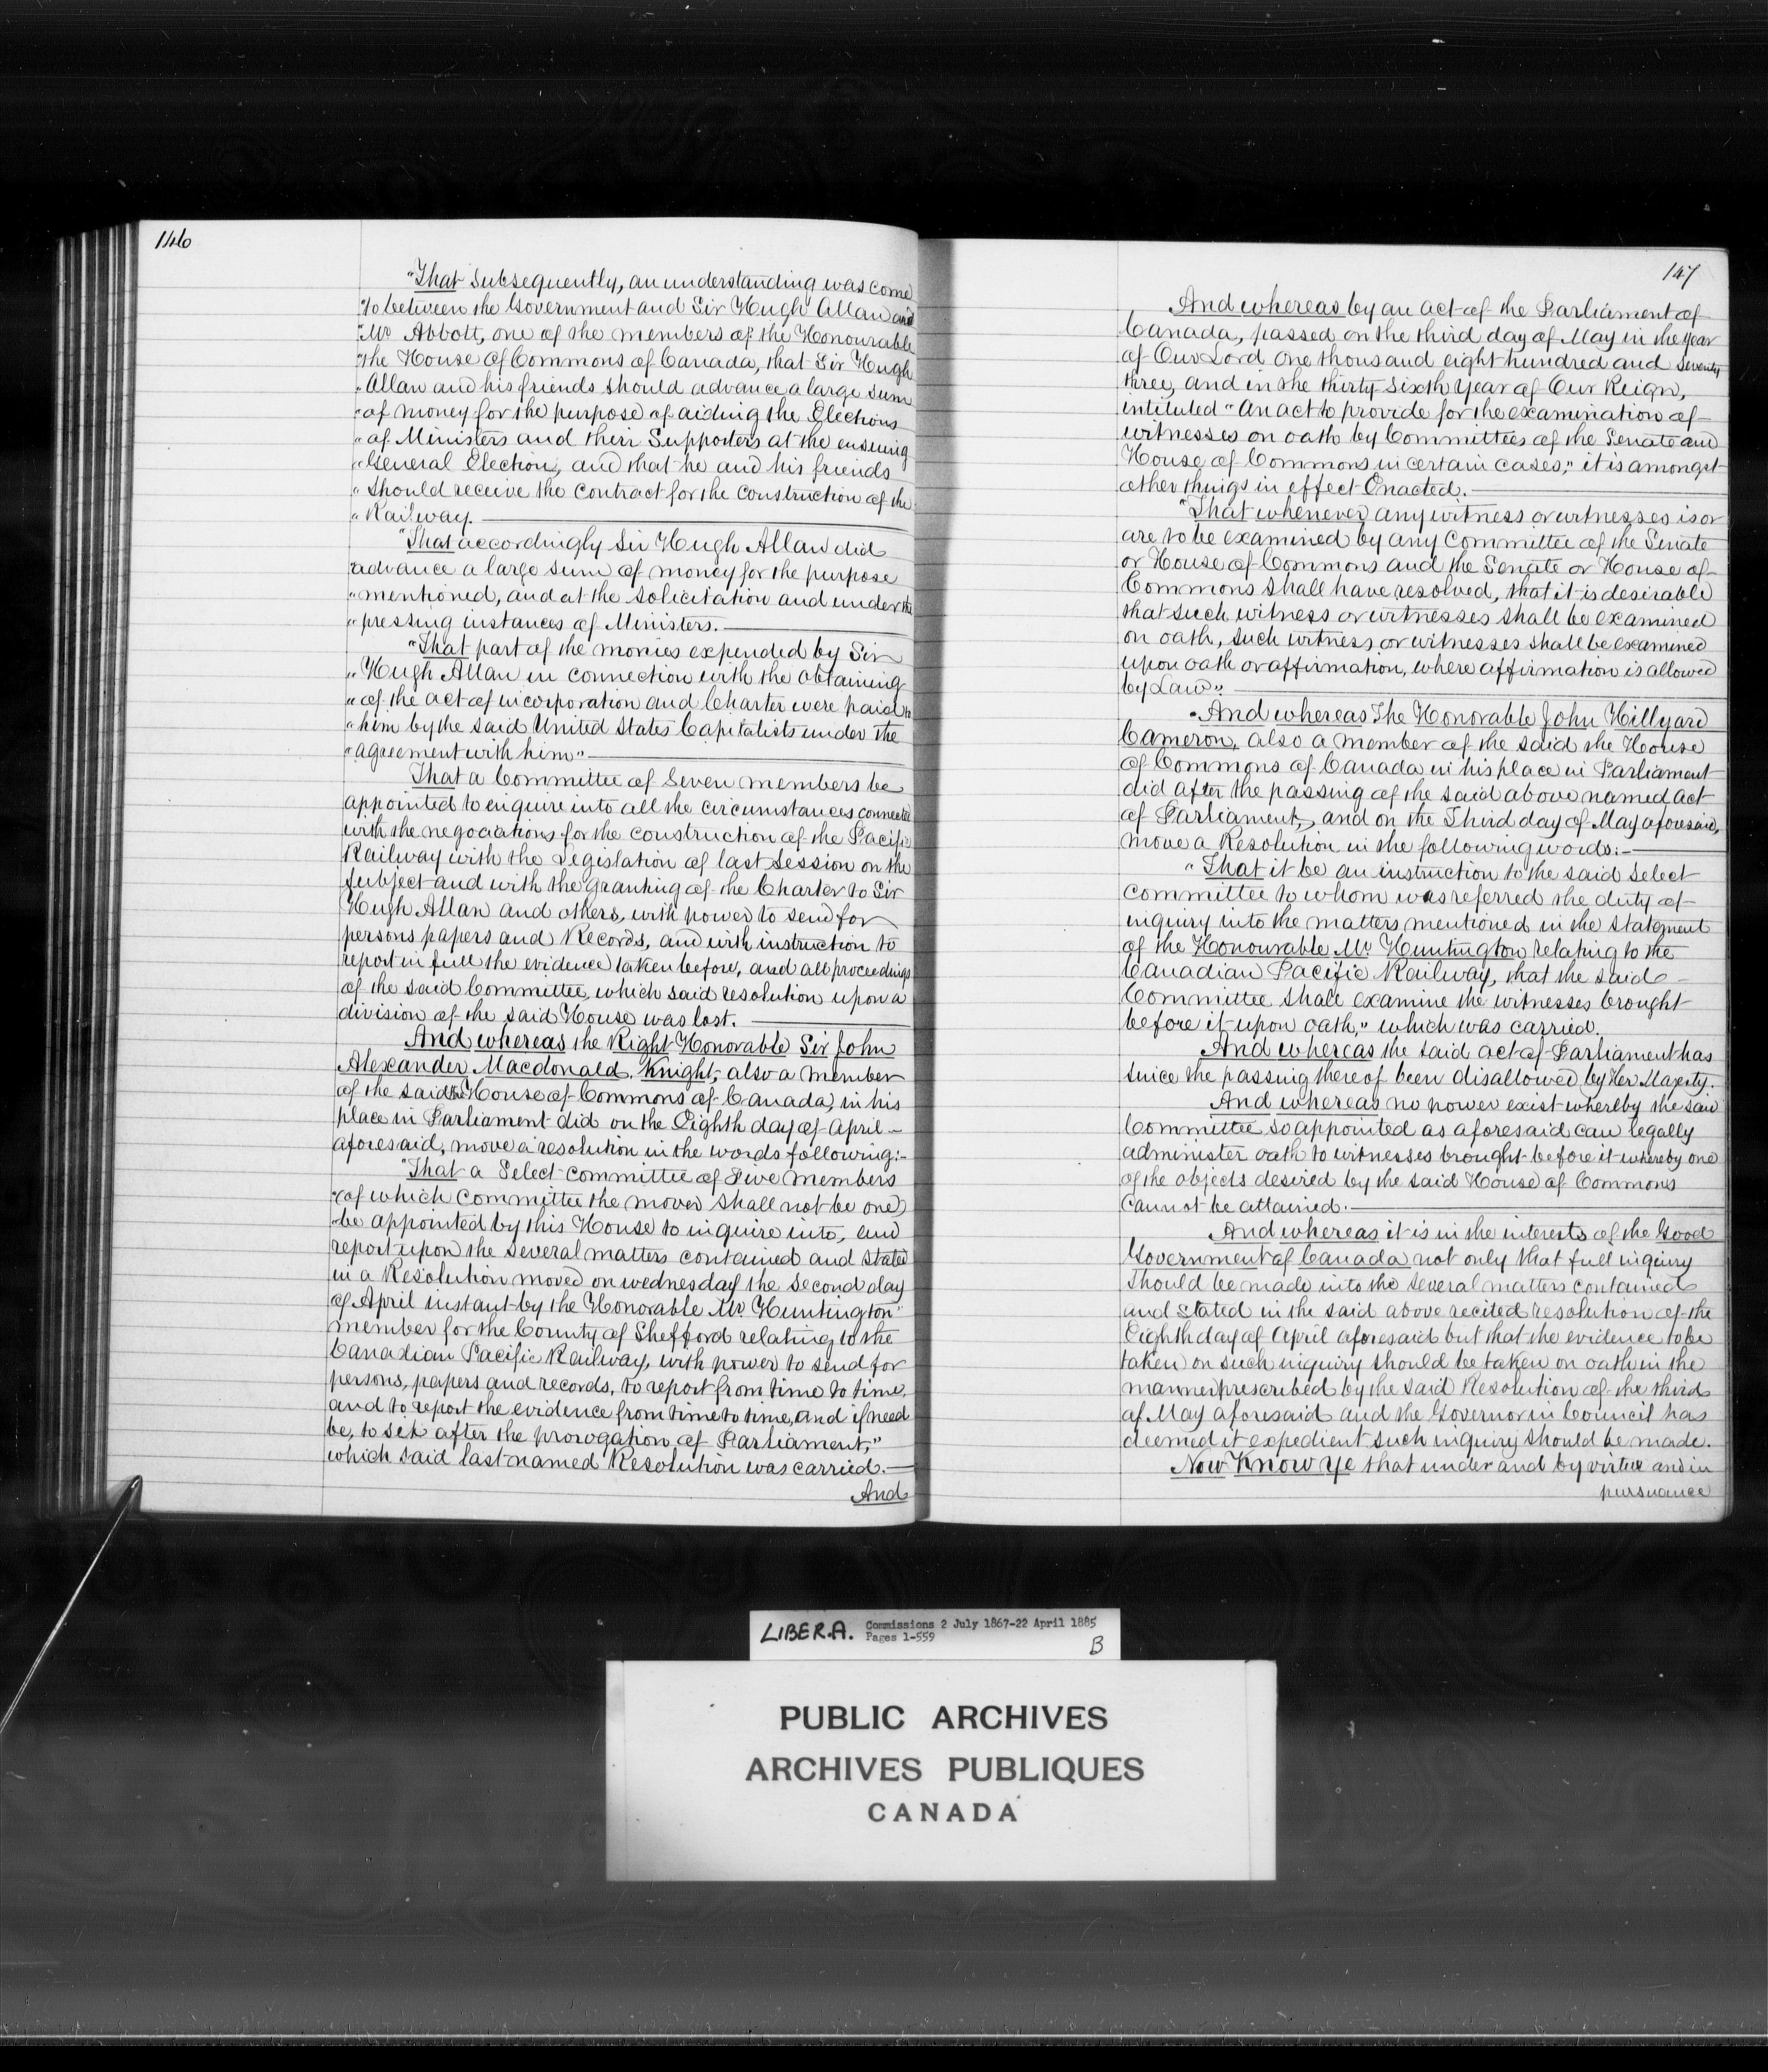 146
"That subsequently, an understanding was come
"to between the Government and Sir Hugh Allan and
"Mr Abbott, one of the members of the Honourable
"the House of Commons of Canada, that Sir Hugh
"Allan and his friends should advance a large sum
"of money for the purpose of aiding the Elections
"of Ministers and their Supporters at the ensuing
"General Election, and that he and his friends
"should receive the contract for the construction of the
"Railway.
"That accordingly Sir Hugh Allan did
"advance a large sum of money for the purpose
"mentioned, and at the solicitation and under the
"pressing instances of Ministers.
"That part of the monies expended by Sir
"Hugh Allan in connection with the obtaining
"of the act of incorporation and Charter were paid to
"him by the said United States Capitalists under the
"agreement with him"
That a Committee of Seven members be
appointed to enquire into all the circumstances connected
with the negociations for the construction of the Pacific
Railway with the Legislation of last Session on the
subject and with the granting of the Charter to Sir
Hugh Allan and others, with power to send for
persons papers and Records, and with instruction to
report in full the evidence taken before, and all proceedings
of the said Committee, which said resolution upon a
division of the said House was lost.
And whereas the Right Honorable Sir John
Alexander Macdonald, Knight, also a member
of the said the House of Commons of Canada, in his
place in Parliament did on the Eighth day of April
aforesaid, move a resolution in the words following:-
"That a Select committee of Five members
"(of which Committee the mover shall not be one)
"be appointed by this House to inquire into, and
report upon the several matters contained and stated
in a Resolution moved on wednesday the second day
of April instant by the Honorable Mr. Huntington
member for the County of Shefford relating to the
Canadian Pacific Railway, with power to send for
persons, papers and records, to report from time to time,
and to report the evidence from time to time, and if need
be, to sit after the prorogation of Parliament,"
which said last named Resolution was carried.—
And
147
And whereas by an act of the Parliament of
Canada, passed on the third day of May in the year
of Our Lord one thousand eight hundred and seventy
three, and in the thirty sixth year of Our Reign,
intituled "An act to provide for the examination of
witnesses on oath by Committees of the Senate and
House of Commons in certain cases," it is amongst
other things in effect Enacted.
"That whenever any witness or witnesses is or
are to be examined by any Committee of the Senate
or House of Commons and the Senate or House of
Commons shall have resolved, that it is desirable
that such witness or witnesses shall be examined
on oath, such witness or witnesses shall be examined
upon oath or affirmation, where affirmation is allowed
by Law".
And whereas The Honorable John Hillyard
Cameron, also a member of the said the House
of Commons of Canada in his place in Parliament
did after the passing of the said above named Act
of Parliament, and on the Third day of May aforesaid,
move a Resolution in the following words:-
"That it be an instruction to the said Select
Committee to whom was referred the duty of
inquiry into the matters mentioned in the Statement
of the Honourable Mr. Huntington relating to the
Canadian Pacific Railway, that the said
Committee shall examine the witnesses brought
before it upon oath," which was carried.
And whereas the said act of Parliament has
since the passing thereof been disallowed by Her Majesty.
And whereas no power exist whereby the said
Committee so appointed as aforesaid can legally
administer oath to witnesses brought before it whereby one
of the objects desired by the said House of Commons
cannot be attained.
And whereas it is in the interests of the Good
Government of Canada not only that full inquiry
should be made into the several matters contained
and stated in the said above recited resolution of the
Eighth day of April aforesaid but that the evidence to be
taken on such inquiry should be taken on oath in the
manner prescribed by the said Resolution of the third
of May aforesaid and the Governor in Council has
deemed it expedient such inquiry should be made.
Now Know Ye that under and by virtue and in
pursuance
LIBER.A. Commissions 2 July 1867-22 April 1885
Pages 1-559
B
PUBLIC ARCHIVES
ARCHIVES PUBLIQUES
CANADA